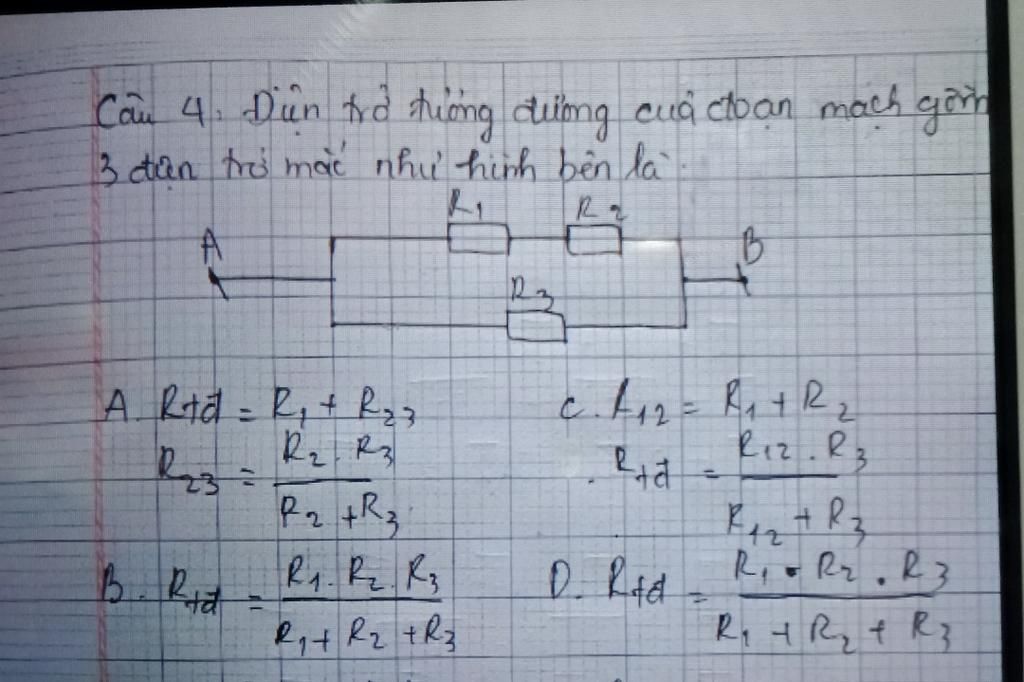 Câu 4. Điện trở tương đương của đoạn mạch gồm
3 điện trở mắc như hình bên là.
R1 R2
A B
R3
A. Rtđ = R1 + R23
R23 = R2 . R3 / R2 + R3
B. Rtđ = R1 . R2 . R3 / R1 + R2 + R3
C. R12 = R1 + R2
Rtđ = R12 . R3 / R12 + R3
D. Rtđ = R1 . R2 . R3 / R1 + R2 + R3